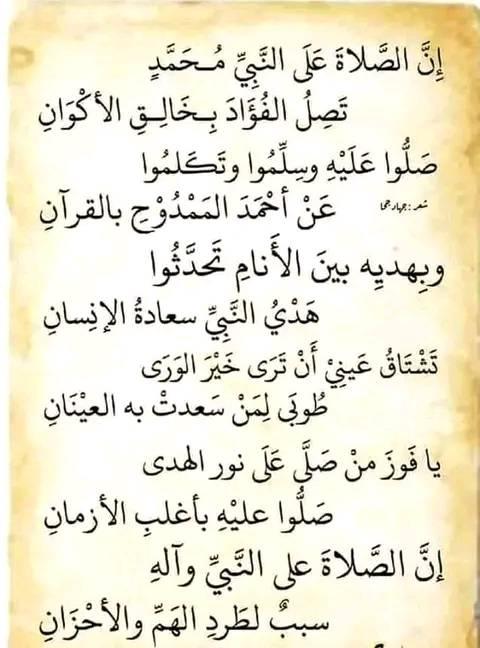 إِنَّ الصَّلاةَ عَلَى النَّبِيِّ مُـحَمَّدٍ
تَصِلُ الفُؤَادَ بِـخَالِـقِ الأكْوَانِ
صَلُّوا عَلَيْهِ وسِلِّمُوا وتَكَلمُوا
عَنْ أحْمَدَ المَمْدُوْحِ بالقرآنِ
شعر : جهاد جحا
وبِهديِه بينَ الأَنامِ تَحدَّثُوا
هَدْيُ النَّبِيِّ سعادةُ الإنِسانِ
تَشْتَاقُ عَينِيْ أَنْ تَرَى خَيْرَ الوَرَى
طُوبَى لِمَنْ سَعدتْ به العيْنَانِ
يا فَوزَ منْ صَلَّى عَلَى نور الهدى
صَلُّوا عليْهِ بأغلبِ الأزمانِ
إنَّ الصَّلاةَ على النَّبِيِّ وآلهِ
سببٌ لطَردِ الهَمِّ والأحْزَانِ